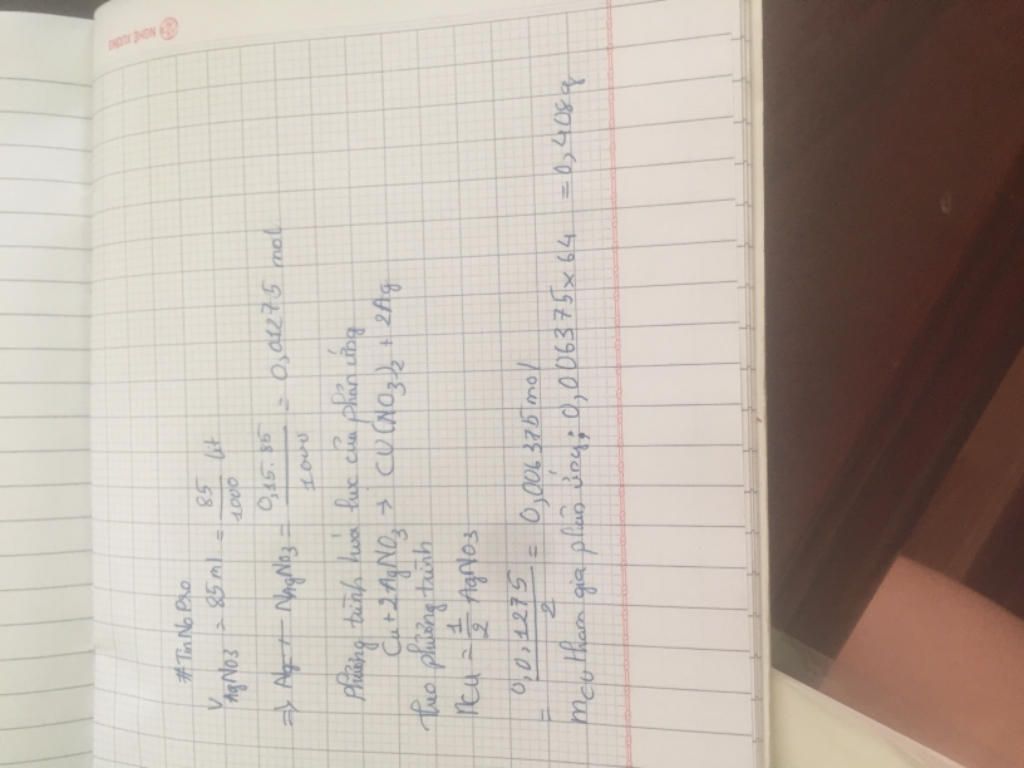 NGHỆ XƯƠNG
#TinNoPro
V AgNO3 = 85 ml = 85/1000 lít
=> NAgNO3 = 0,15.85/1000 = 0,01275 mol
Phương trình hóa học của phản ứng
Cu + 2AgNO3 → Cu(NO3)2 + 2Ag
theo phương trình
nCu = 1/2 AgNO3
= 0,01275/2 = 0,006375 mol
mCu tham gia phản ứng: 0,006375 x 64 = 0,408g